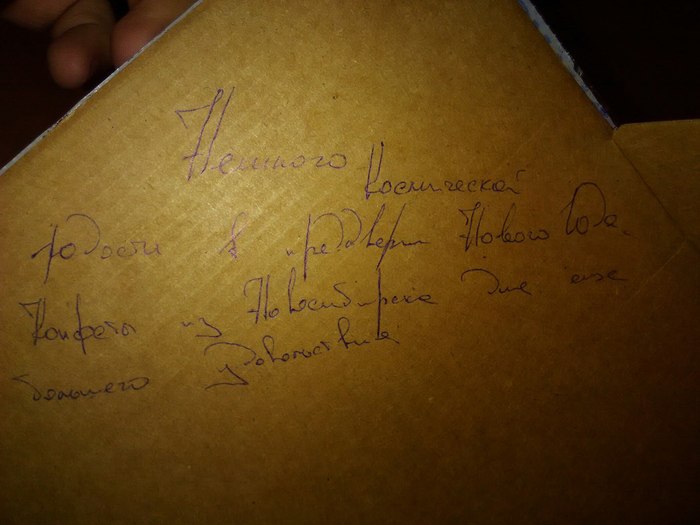 Немного Космической
радости в предверии Нового Года.
Конфеты из Новосибирска для еще
большего удовольствия